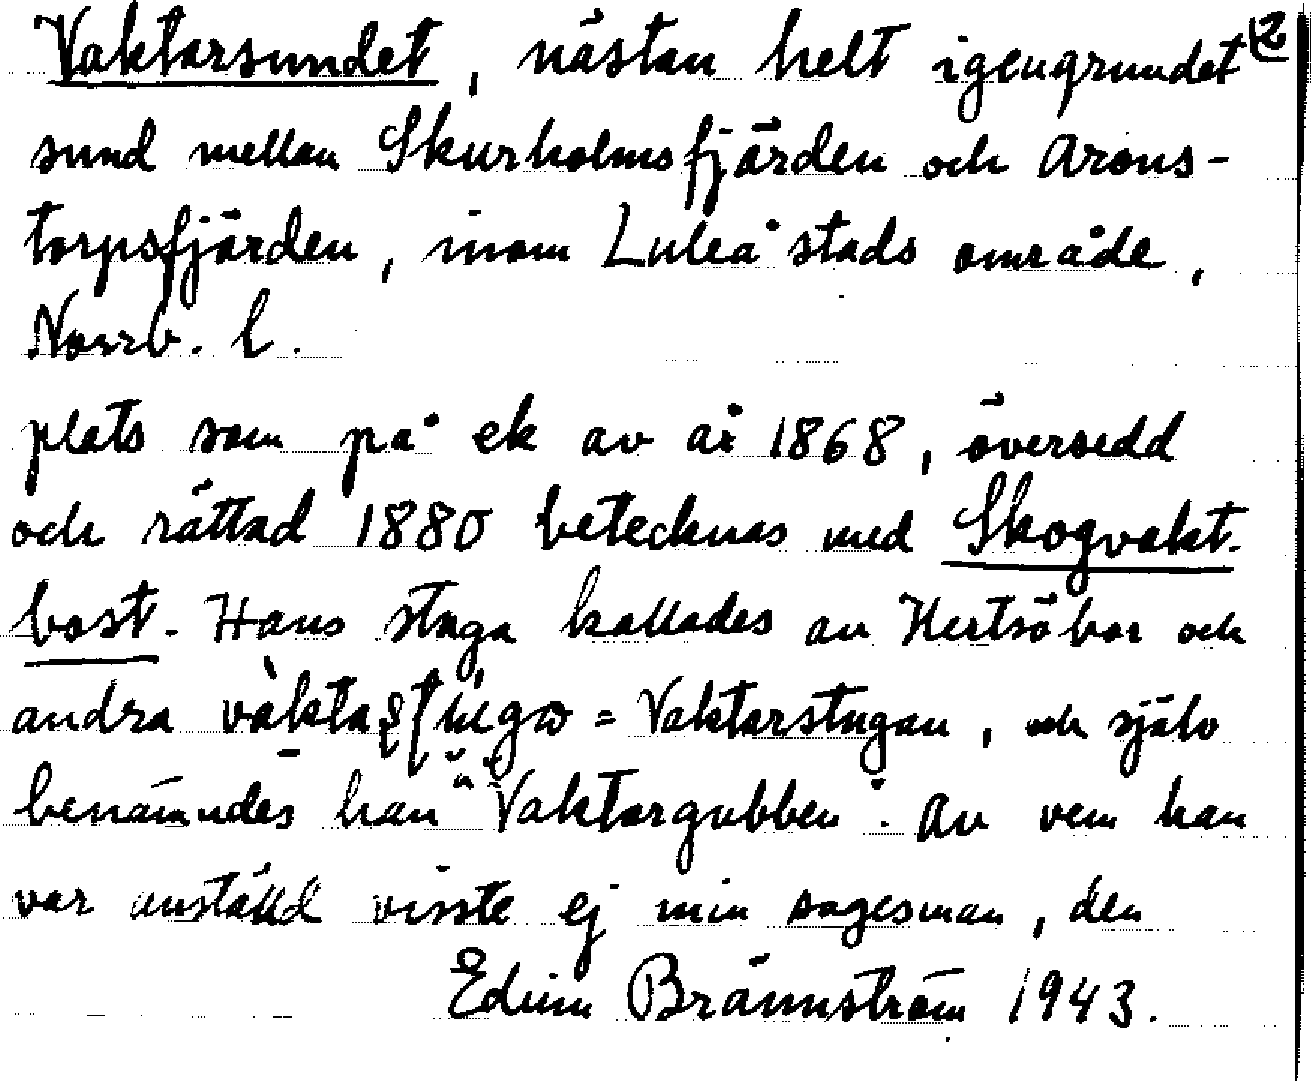 Vaktarsundet, nästan helt igengrundet 2
sund mellan Skurholmsfjärden och Arons-
torpsfjärden, inom Luleå stads område,
Norrb. l.
plats som på ek av år 1868, översedd
och rättad 1880 betecknas med Skogvakt.
bost. Hans stuga kallades av Hertsöbor och
andra = Vaktarstugan, och själv
benämndes han "Vaktargubben". Av vem han
var anställd visste ej min sagesman, den
Edvin Brännström 1943.